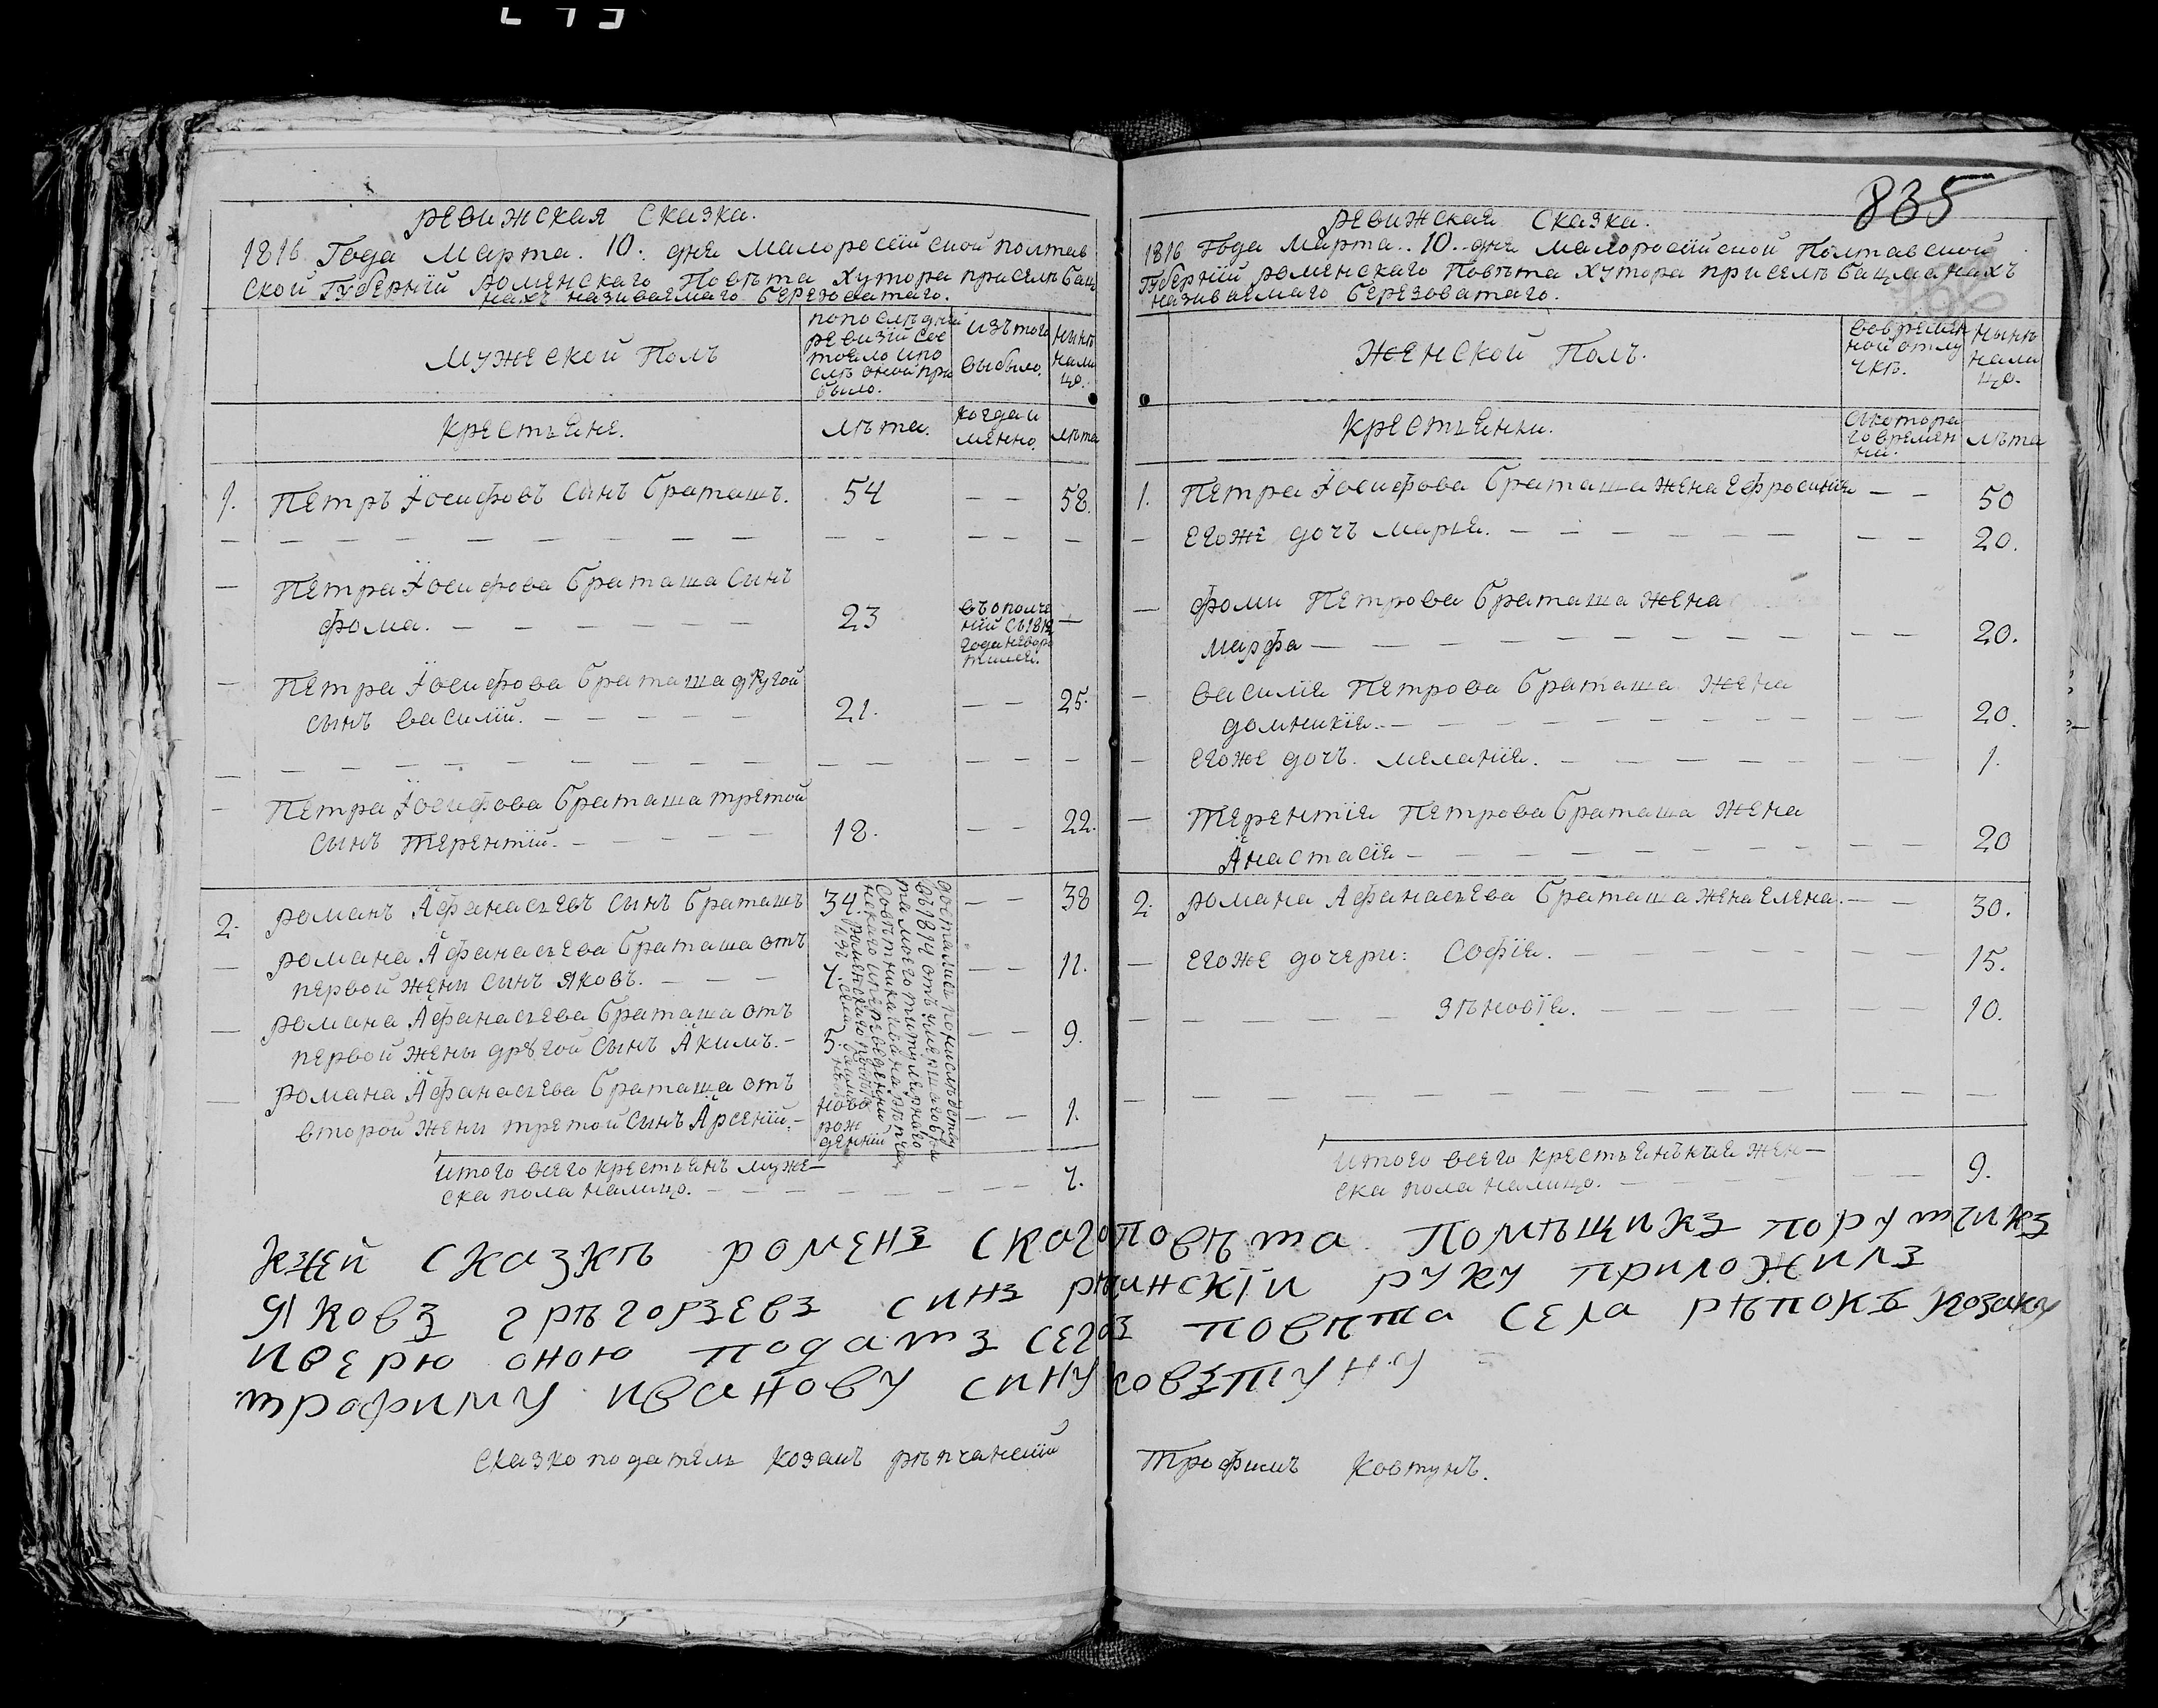 835
Ревижская Сказка.
1816 Года Марта. 10. дня Малоросїйской полтав
ской Губернїй Роменскаго Повѣта Хутора приселѣ Бац
манахъ називаемаго Березоватаго.
Мужеской Полъ
попоследней
ревизїй сос
тояло и по
слѣ оной при
было.
изътого
выбыло.
нынѣ
нали
цо.
Крестьяне.
лѣта.
когда и
менно.
лѣта
1. Петръ Їосифовъ синъ Браташъ. 54 — — 58.
Петра Їосифова Браташа синъ
Фома. 23 въополче
нїй съ1812
года невозро
тился. —
Петра Їосифова Браташа другой
сынъ Василїй. 21. — — 25.
Петра Їосифова Браташа третой
сынъ Терентїй. 18. — — 22.
2. Романъ Афанасьевъ синъ Браташъ 34 — — 38
Романа Афанасьева Браташа отъ
первой жени синъ Яковъ. 7. — — 11.
Романа Афанасьева Браташа отъ
первой жены другой сынъ Акимъ. 5. — — 9.
Романа Афанасьева Браташа отъ
второй жени третой синъ Арсенїй. ново
рож
денний — — 1.
въ 1814 отъ
та моего титулярнаго
Советника Ивана
Роменскаго
Итого всего крестьянъ муже
ска пола налицо. 7.
Ревижская Сказка.
1816 Года Марта. 10. дня Малоросїйской Полтавской
Губернїй Роменскаго Повѣта Хутора приселѣ Бацманахъ
називаемаго Березоватаго.
Женской Полъ.
вовремян
ной отлу
чкѣ.
нынѣ
нали
цо.
Крестьянки.
съкотора
го времен
ни.
лѣта
1. Петра Їосифова Браташа жена Ефросинїя — — 50
егоже дочъ Марья. — — 20.
Фоми Петрова Браташа жена
Марфа — — 20.
Василїя Петрова Браташа жена
Домникїя. — — 20.
егоже дочъ. Меланїя. — — 1.
Терентїя Петрова Браташа жена
Анастасїя — — 20
2. Романа Афанасьева Браташа жена Елена. — — 30.
егоже дочери: Софїя. 15.
Зѣновїя. 10.
Итого всего крестьянъкъя жен
ска пола налицо. — — 9.
Къцей сказкѣ роменъ скогоповѣта Помѣщикъ порутчикъ
Яковъ грѣгорьевъ синъ рѣпинскїи руку приложилъ
иверю оною податъ сегоъ повѣта села рѣпокъ козаку
трофиму иванову сину ковътуну
Сказко податель козакъ рѣпчанскїй Трофимъ Ковтунъ.